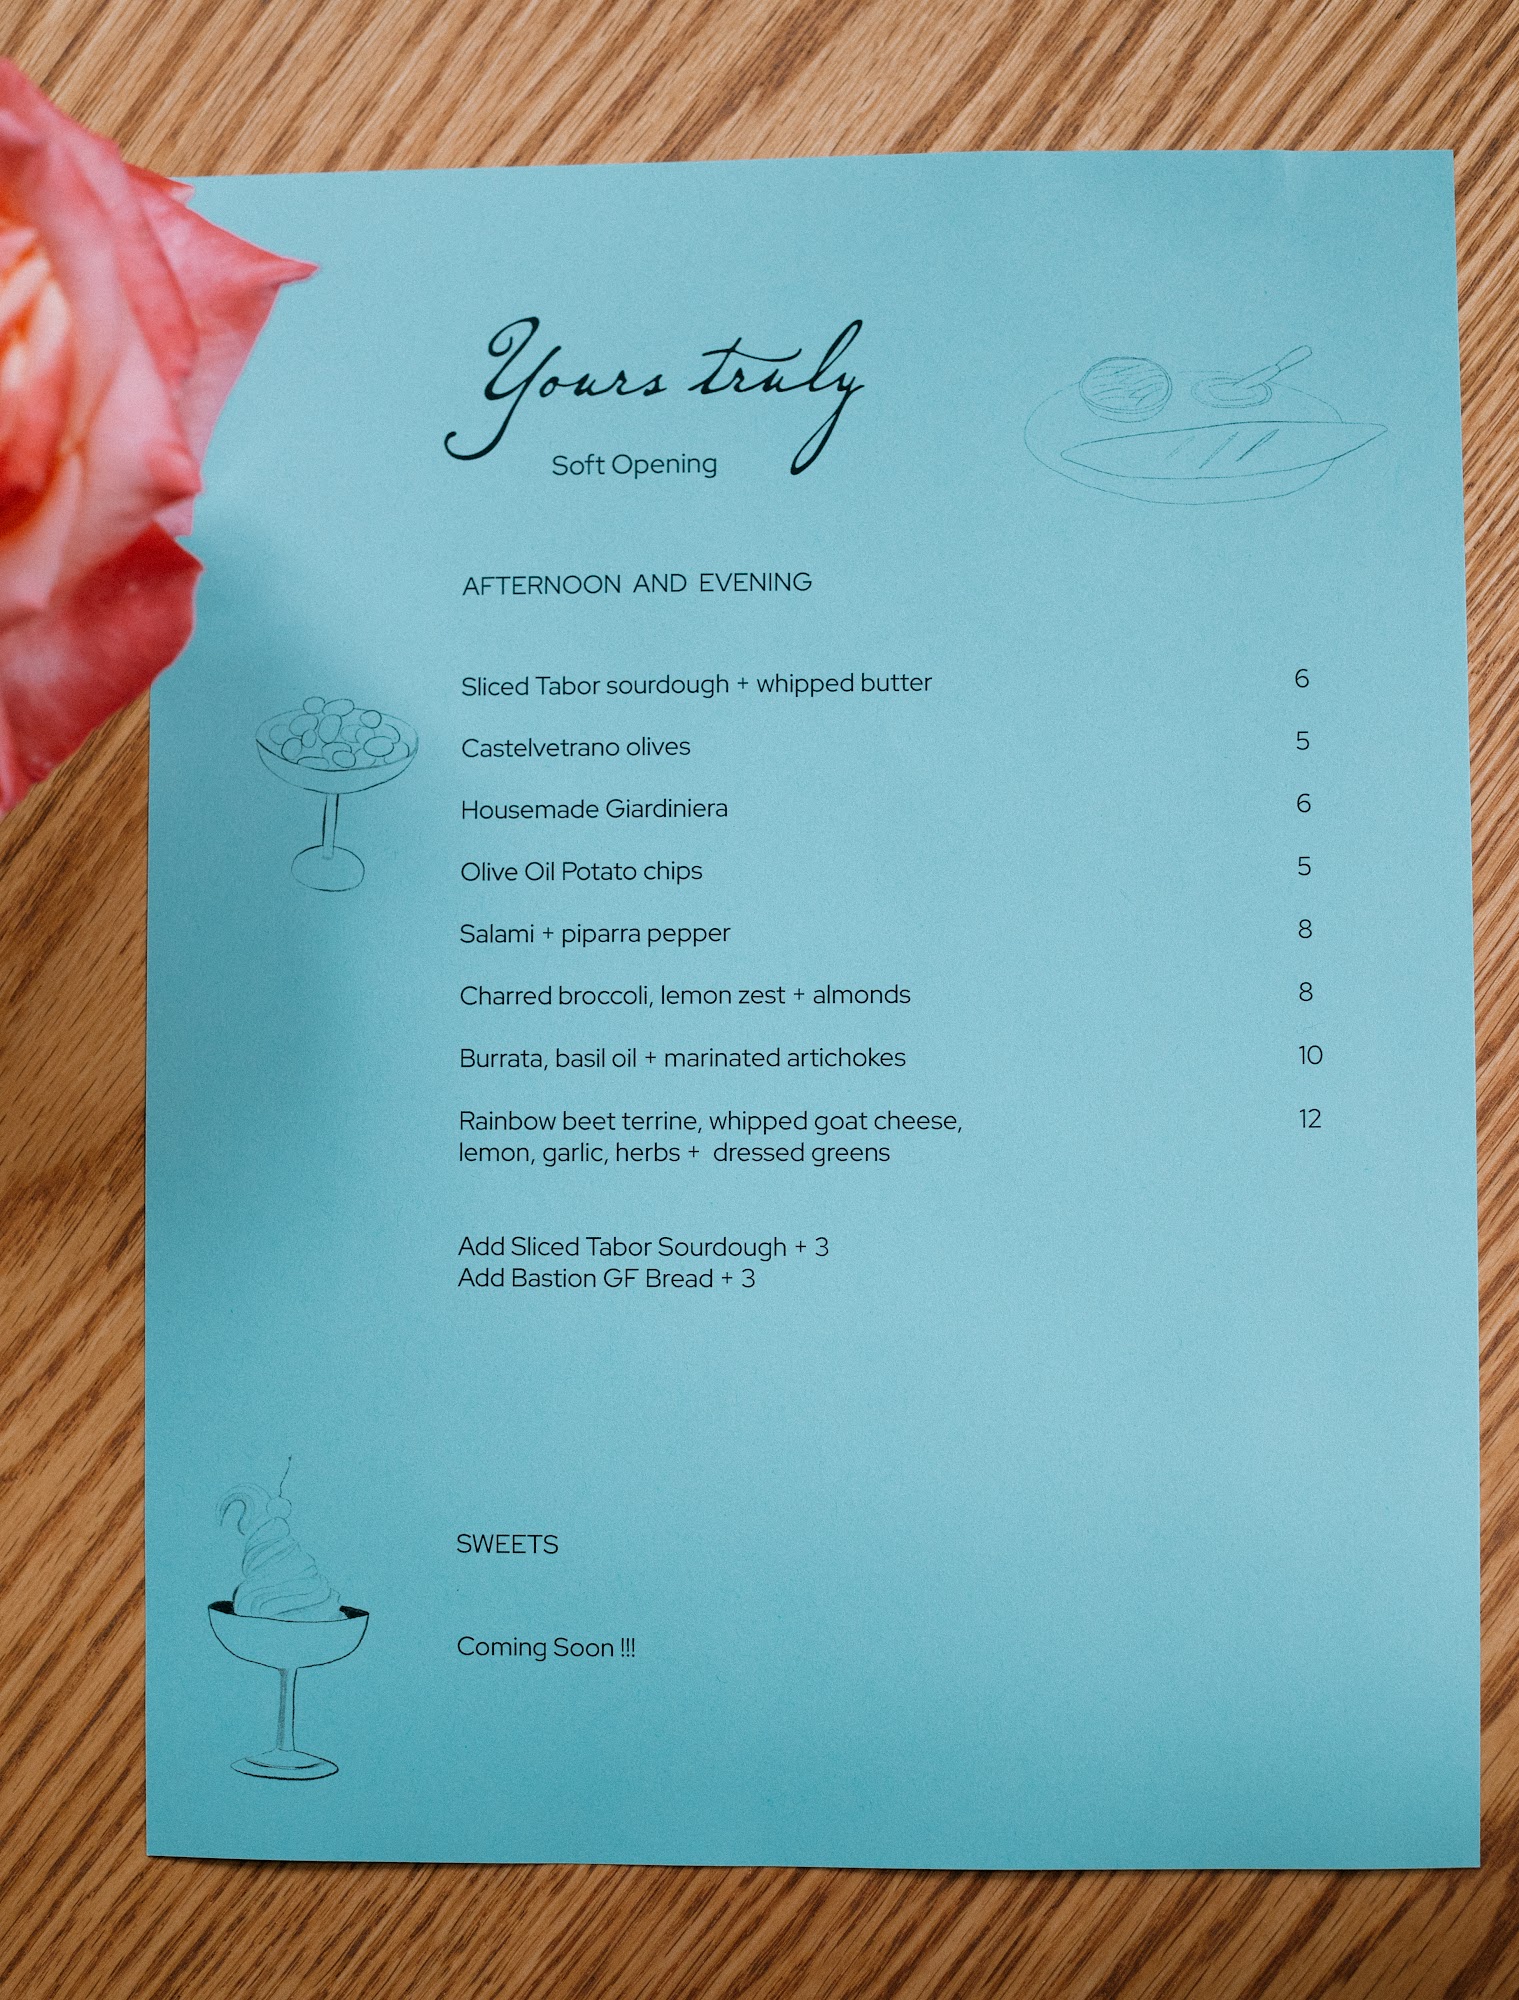 Yours truly
Soft Opening
AFTERNOON AND EVENING
Sliced Tabor sourdough + whipped butter 6
Castelvetrano olives 5
Housemade Giardiniera 6
Olive Oil Potato chips 5
Salami + piparra pepper 8
Charred broccoli, lemon zest + almonds 8
Burrata, basil oil + marinated artichokes 10
Rainbow beet terrine, whipped goat cheese, 12
lemon, garlic, herbs + dressed greens
Add Sliced Tabor Sourdough + 3
Add Bastion GF Bread + 3
SWEETS
Coming Soon !!!